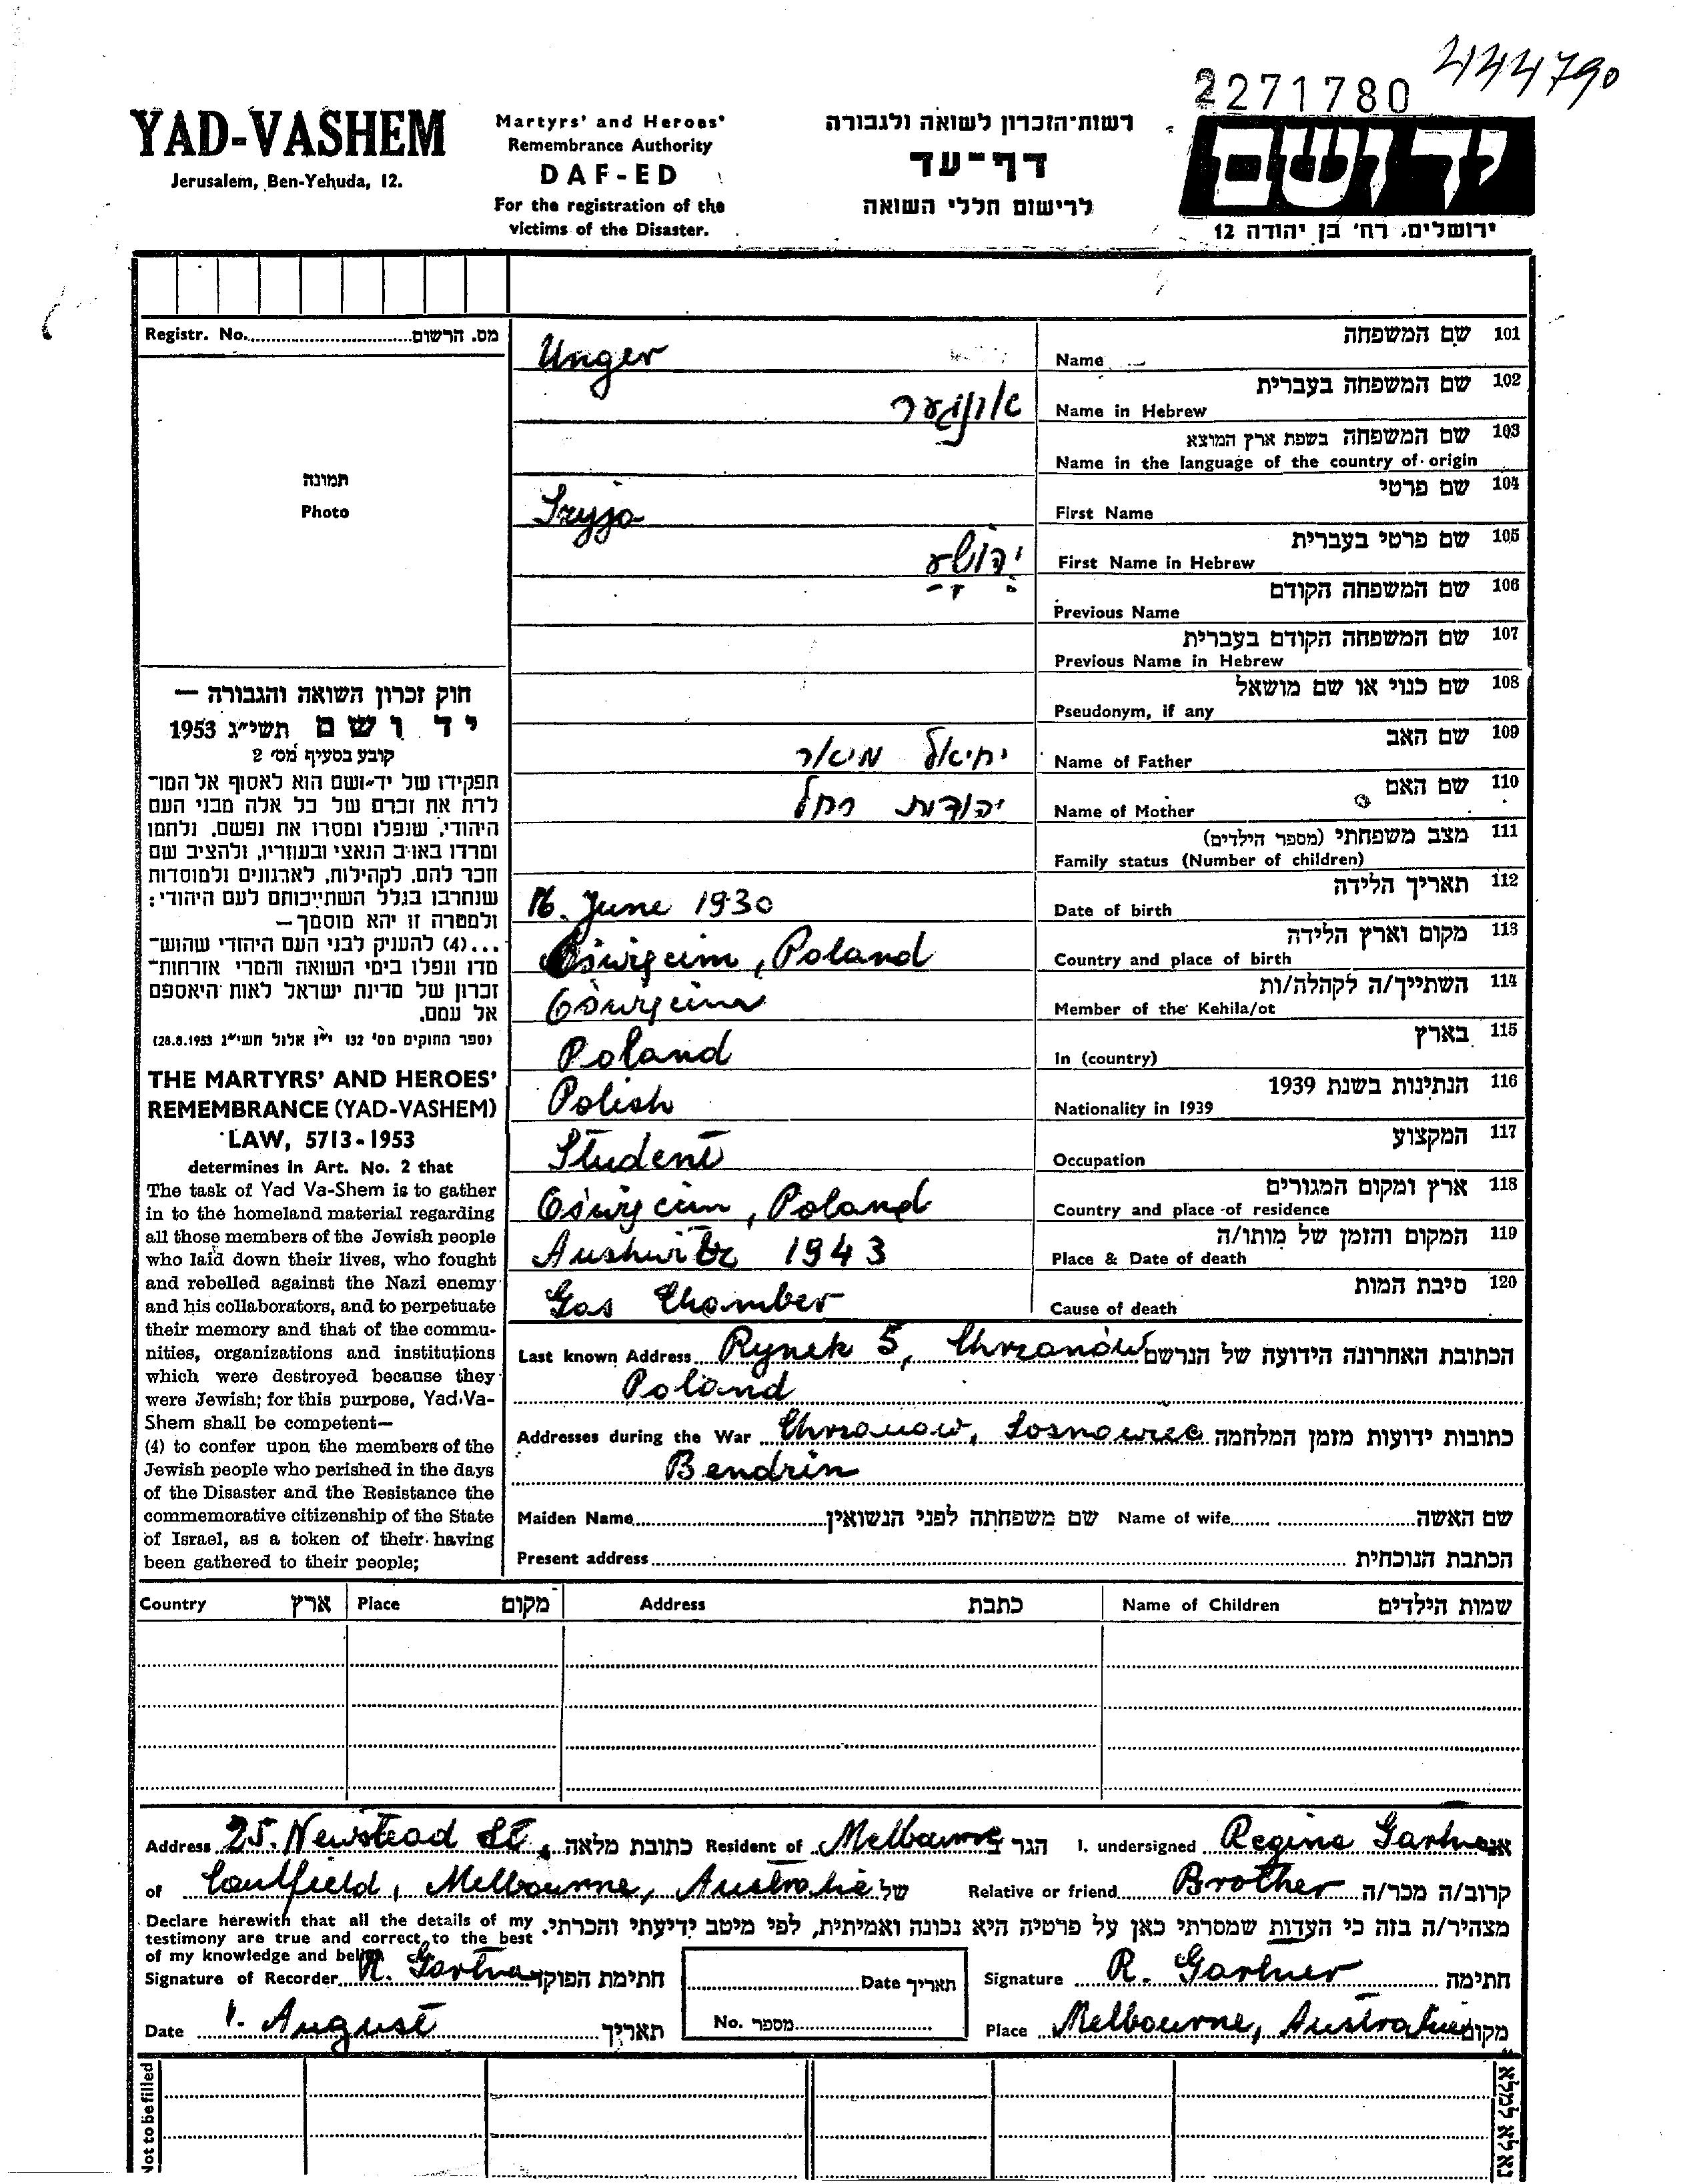 2271780
444790
YAD-VASHEM
Jerusalem, Ben-Yehuda, 12.
Martyrs' and Heroes'
Remembrance Authority
DAF-ED
For the registration of the
victims of the Disaster.
רשות־הזכרון לשואה ולגבורה
דף־עד
לרישום חללי השואה
יד ושם
ירושלים, רח' בן יהודה 12
Registr. No. מס. הרשום
תמונה
Photo
חוק זכרון השואה והגבורה —
יד ושם תשי״ג 1953
קובע בסעיף מס' 2
תפקידו של יד־ושם הוא לאסוף אל המו־
לדת את זכרם של כל אלה מבני העם
היהודי, שנפלו ומסרו את נפשם, נלחמו
ומרדו באויב הנאצי ובעוזריו, ולהציב שם
וזכר להם, לקהילות, לארגונים ולמוסדות
שנחרבו בגלל השתייכותם לעם היהודי;
ולמטרה זו יהא מוסמך —
...(4) להעניק לבני העם היהודי שהוש־
מדו ונפלו בימי השואה והמרי אזרחות־
זכרון של מדינת ישראל לאות היאספם
אל עמם.
(ספר החוקים מס' 132 י״ז אלול תשי״ג 28.8.1953)
THE MARTYRS' AND HEROES'
REMEMBRANCE (YAD-VASHEM)
LAW, 5713-1953
determines in Art. No. 2 that
The task of Yad Va-Shem is to gather
in to the homeland material regarding
all those members of the Jewish people
who laid down their lives, who fought
and rebelled against the Nazi enemy
and his collaborators, and to perpetuate
their memory and that of the commu-
nities, organizations and institutions
which were destroyed because they
were Jewish; for this purpose, Yad-Va-
Shem shall be competent—
(4) to confer upon the members of the
Jewish people who perished in the days
of the Disaster and the Resistance the
commemorative citizenship of the State
of Israel, as a token of their having
been gathered to their people;
101 שם המשפחה
Name Unger
102 שם המשפחה בעברית
Name in Hebrew אונגער
103 שם המשפחה בשפת ארץ המוצא
Name in the language of the country of origin
104 שם פרטי
First Name
105 שם פרטי בעברית
First Name in Hebrew יהושע
106 שם המשפחה הקודם
Previous Name
107 שם המשפחה הקודם בעברית
Previous Name in Hebrew
108 שם כנוי או שם מושאל
Pseudonym, if any
109 שם האב
Name of Father יחיאל מיאר
110 שם האם
Name of Mother יהודית רחל
111 מצב משפחתי (מספר הילדים)
Family status (Number of children)
112 תאריך הלידה
Date of birth 16. June 1930
113 מקום וארץ הלידה
Country and place of birth Oświęcim, Poland
114 השתייך/ה לקהלה/ות
Member of the Kehila/ot Oświęcim
115 בארץ
In (country) Poland
116 הנתינות בשנת 1939
Nationality in 1939 Polish
117 המקצוע
Occupation Student
118 ארץ ומקום המגורים
Country and place of residence Oświęcim, Poland
119 המקום והזמן של מותו/ה
Place & Date of death Aushwitz 1943
120 סיבת המות
Cause of death Gas Chamber
Last known Address Rynek 5, Chrzanów הכתובת האחרונה הידועה של הנרשם
Poland
Addresses during the War Chrzanow, Sosnowiec כתובות ידועות מזמן המלחמה
Bendzin
Maiden Name שם משפחתה לפני הנשואין Name of wife שם האשה
Present address הכתבת הנוכחית
Country ארץ Place מקום Address כתבת Name of Children שמות הילדים
Address 25. Newstead St., כתובת מלאה Resident of Melbourne הגר ב I, undersigned Regina Gartner אני
of Caulfield, Melbourne, Australia של Relative or friend Brother קרוב/ה מכר/ה
Declare herewith that all the details of my
testimony are true and correct, to the best
of my knowledge and belief.
מצהיר/ה בזה כי העדות שמסרתי כאן על פרטיה היא נכונה ואמיתית, לפי מיטב ידיעתי והכרתי.
Signature of Recorder R. Gartner חתימת הפוקד Date תאריך Signature R. Gartner חתימה
Date 1. August תאריך No. מספר Place Melbourne, Australia מקום
Not to be filled
נא לא למלא